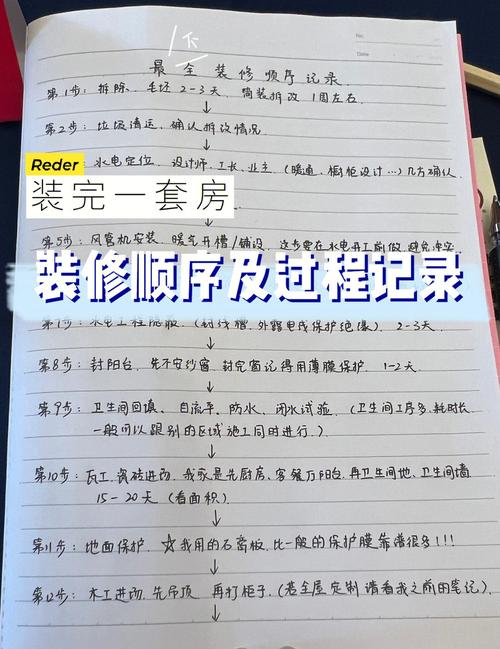 No.
Date
最全装修顺序记录
第1步：拆除、毛坯2-3天 简装拆改 1周左右
↓
第2步：垃圾清运、确认拆改情况
水电定位、设计师、工长、业主（暖通、橱柜设计…）几方确认
Reder
装完一套房
第5步：风管机安装、暖气开槽/铺设
装修顺序及过程记录
2-3天
↓
第8步：封阳台、先不安纱窗、封完窗记得用薄膜保护、1-2天
↓
第9步：卫生间回填、自流平、防水、闭水试验、（卫生间工序多、耗时长、
一般可以跟别的区域施工同时进行.）
↓
第10步：瓦工、瓷砖进场、我家是先厨房、客餐厅阳台、再卫生间地、卫生间墙
15-20天（看面积）
↓
第11步：地面保护、☆我用的石膏板、比一般的保护膜靠谱很多!!!
↓
第12步：木工进场、先吊顶 再打柜子、（若全屋定制 请看我之前的笔记）.
↓